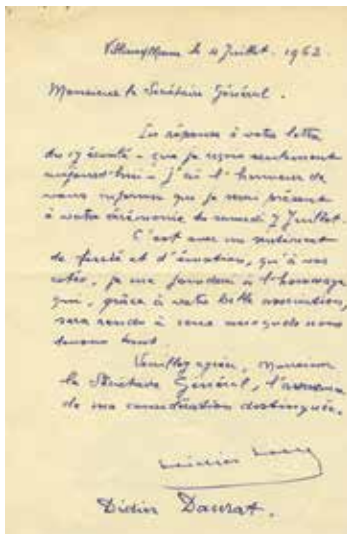 le 4 Juillet. 1962.
Monsieur le Secrétaire Général.
En réponse à votre lettre
du 17 écoulé - que je reçois seulement
aujourd'hui - j'ai l'honneur de
vous informer que je serai présent
à votre cérémonie du samedi 7 Juillet.
C'est avec un sentiment
de fierté et d'émotion, qu'à vos
côtés, je me joindrai à l'hommage
qui, grâce à votre belle association,
sera rendu à ceux auxquels nous
devons tant.
Veuillez agréer, Monsieur
le Secrétaire Général, l'assurance
de ma considération distinguée.
Didier Daurat.